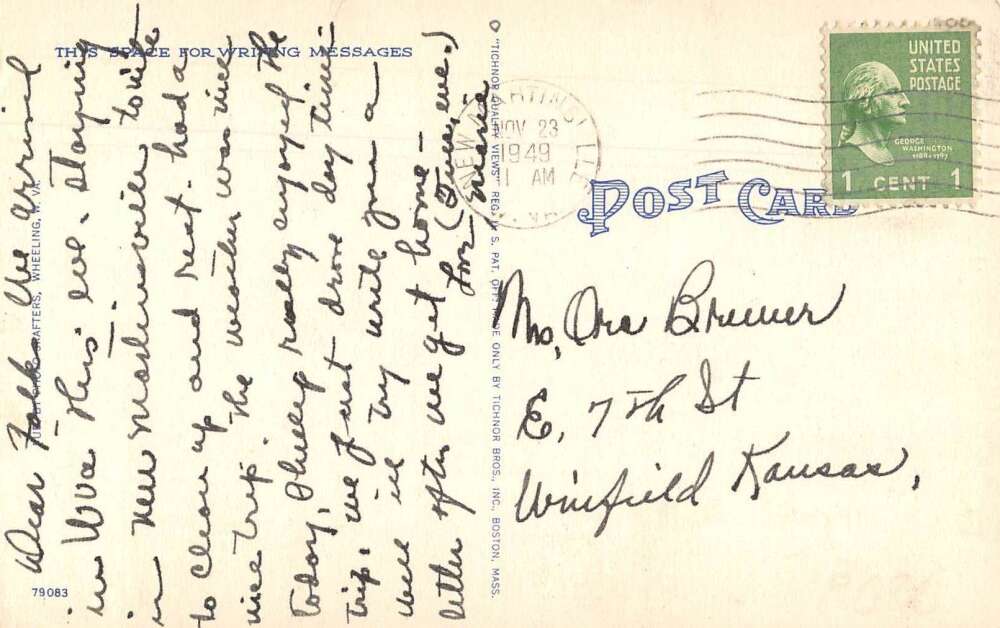 THIS SPACE FOR WRITING MESSAGES
Dear Folks: We arrived
in W Va this eve. Staying
in New Martinsville tonite
to clean up and rest. had a
nice trip. The weather was nice
today. Shirley really enjoyed the
trip. we just drove day time
will try write you a
letter after we get home -
(Tues. eve.)
Love Marie
79083
PUB. BY PHOTO CRAFTERS, WHEELING, W. VA.
"TICHNOR QUALITY VIEWS" REG. U. S. PAT. OFF. MADE ONLY BY TICHNOR BROS., INC., BOSTON, MASS.
NEW MARTINSVILLE
NOV 23
1949
11 AM
W. VA.
UNITED
STATES
POSTAGE
GEORGE
WASHINGTON
1789-1797
1 CENT 1
POST CARD
Mrs. Ora Bremer
E. 7th St
Winfield Kansas.